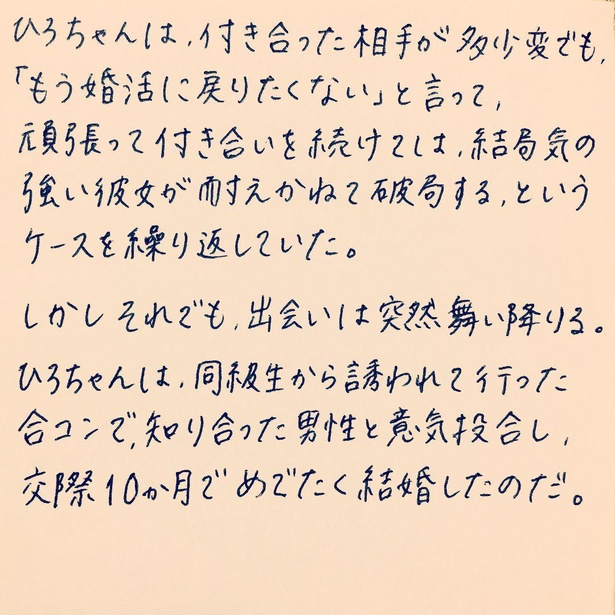 ひろちゃんは、付き合った相手が多少変でも、
「もう婚活に戻りたくない」と言って、
頑張って付き合いを続けては、結局気の
強い彼女が耐えかねて破局する、という
ケースを繰り返していた。
しかしそれでも、出会いは突然舞い降りる。
ひろちゃんは、同級生から誘われて行った
合コンで、知り合った男性と意気投合し、
交際10か月でめでたく結婚したのだ。